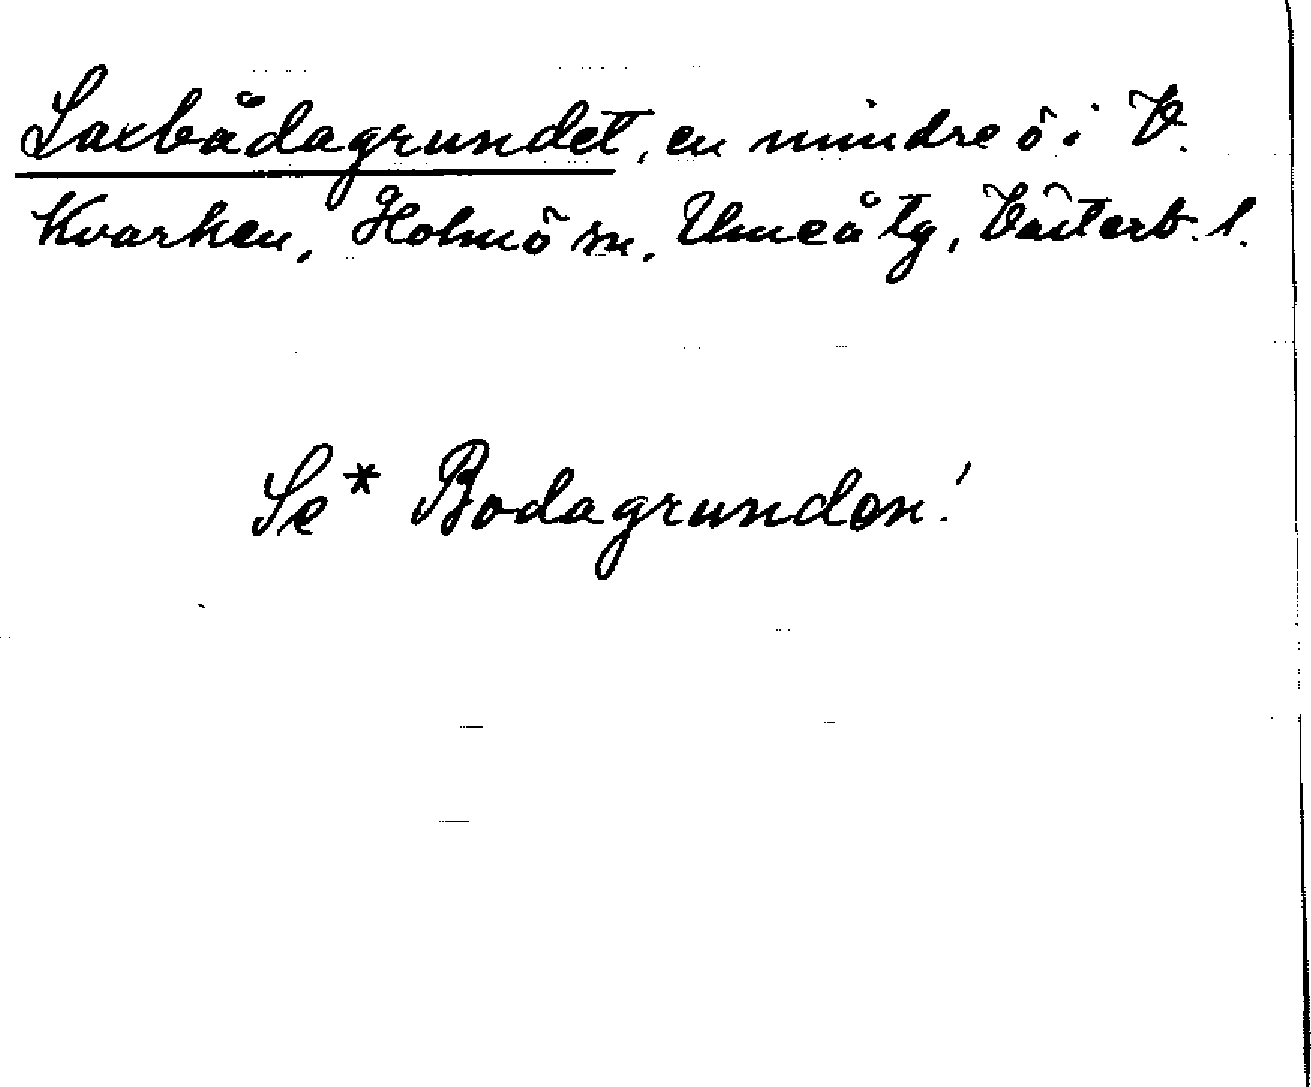 Laxbådagrundet, en mindre ö i V.
Kvarken, Holmö sn, Umeå tg, Västerb. l.
Se * Bodagrunden!